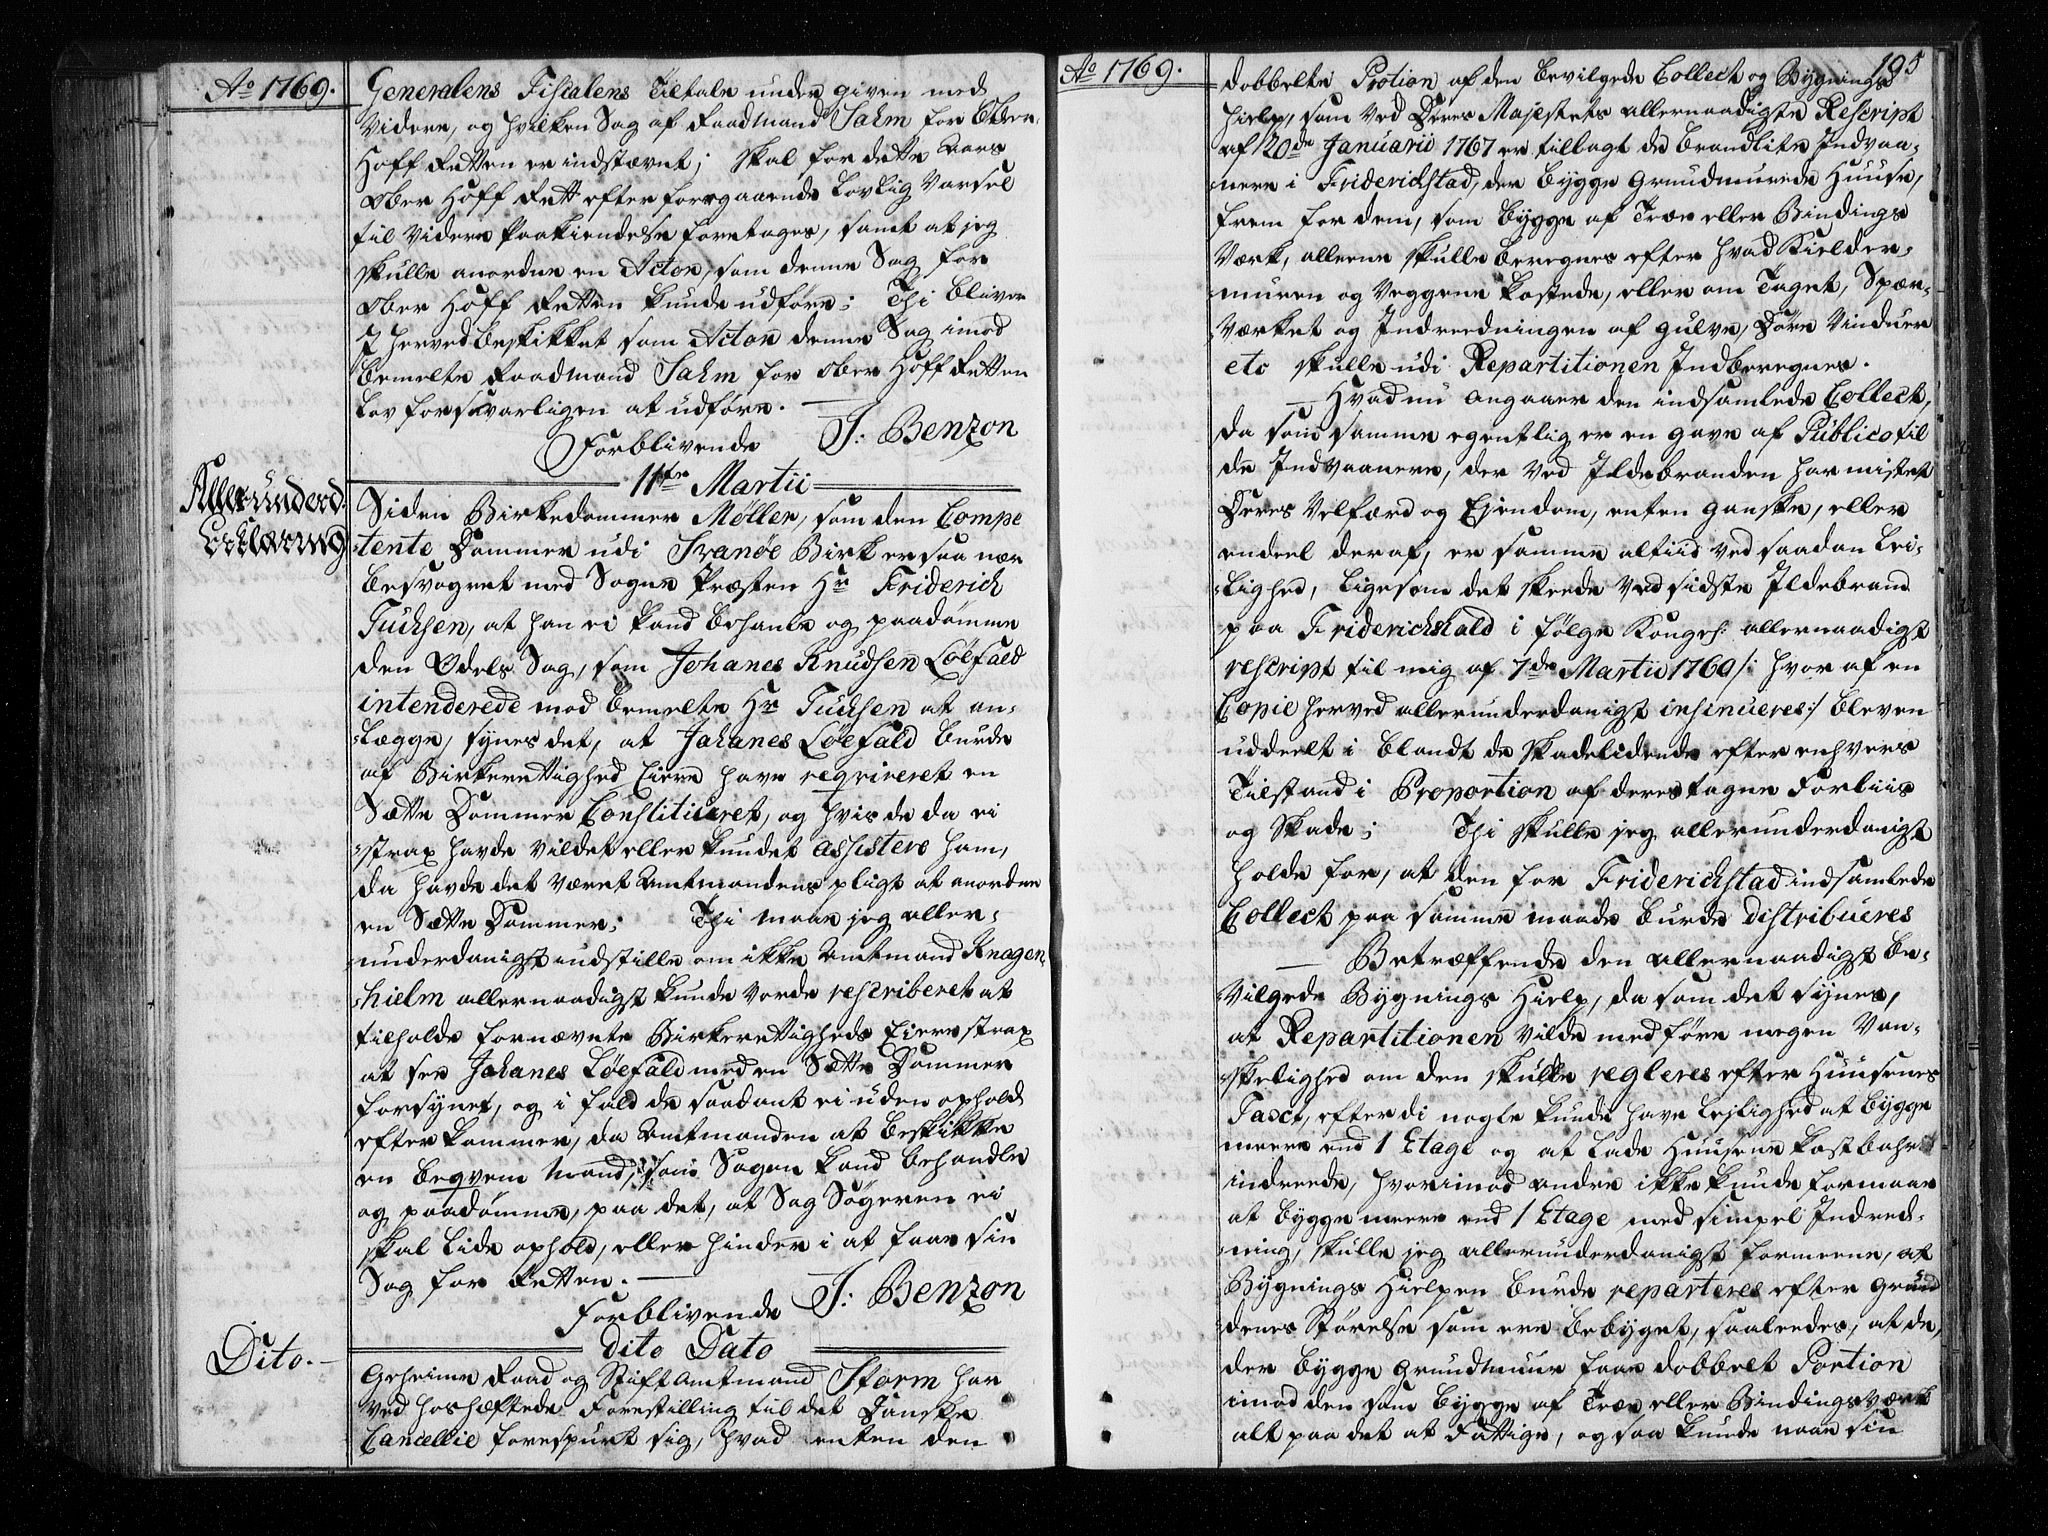 Ao 1769.
Generalens Fiscalens Tiltale under given med
Videre, og hvilken Sag af Raadmand Sahm for Ober-
Hoff Retten er indstævnet; skal for dette Aars
Ober Hoff Rett efter foregaaende Lovlig Varsel
til Videre Paakiendelse foretages, samt at jeg
skulle anordne en Actor, som denne Sag for
Ober Hoff Retten kunde udføre; Thi bliver
I herved beskikket som Actor denne Sag imod
bemelte Raadmand Sahm for Ober Hoff Retten
Lov forsvarligen at udføre.
Forblivende J: Benzon
11te Martii
Allerunderd.
Erklæring
Siden Birkedommer Møller, som den Compe
-tente Dommer udi Svanøe Birk er saa nær
besvogret med Sogne Præsten Hr Friderich
Tuchsen, at han ei kand behandle og paadømme
den Odels Sag, som Johanes Knudsen Løefald
intenderede mod bemelte Hr Tuchsen at an-
-lægge, synes det, at Johanes Løefald burde
af Birkerettighed Eiere have reqvireret en
Sætte Dommer Constitueret, og hvis de da ei
strax havde vildet eller kundet assistere ham,
da havde det været Amtmandens pligt at anordne
en Sætte Dommer; Thi maae jeg aller-
underdanigst indstille om ikke Amtmand Knagen-
-hielm allernaadigst kunde vorde rescriberet at
tilholde fornævnte Birkerettigheds Eiere strax
at see Johanes Løefald med en Sætte Dommer
forsynet, og i fald de saadant ei uden ophold
efterkommer, da Amtmanden at beskikke
en beqvem Mand, som Sagen kand behandle
og paadømme, paa det, at Sag Søgeren ei
skal lide ophold, eller hinder i at faae sin
Sag for Retten.
Forblivende J: Benzon
dito Dato
Dito.
Geheime Raad og Stiftamtmand Storm har
ved hoshæftede Forestilling til det Danske
Cancellie forespurt sig, hvad enten den
Ao 1769.
195
dobbelte Protion af den bevilgede Collect og Bygnings
Hielp, som ved Deres Majestets allernaadigste Rescript
af 20de Januarii 1767 er tillagt de brandlitte Indvaa-
nere i Friderichstad, der bygge Grundmurede Huuse,
frem for dem, som bygge af Træe eller Bindings
Værk, alleene skulle beregnes efter hvad Kielder-
muren og Veggene kostede, eller om Taget, Spær-
Værket og Indreedningen af gulve, Døre Vinduer
etc skulle udi Repartitionen Indberegnes.
Hvad nu angaaer den indsamlede Collect,
da som samme egentlig er en gave af Publico til
de Indvaanere, der ved Ildebranden har mistet
Deres Velfærd og Ejendom, enten ganske, eller
endeel deraf, er samme altiid ved saadan Lei-
-lighed, ligesom det skeede ved sidste Ildebrand
paa Friderichshald i følge Kongel: allernaadigst
rescript til mig af 7de Martii 1760 /: hvor af en
Copie herved allerunderdanigst insinueres :/ bleven
uddeelt i blandt de skadelidende efter enhvers
Tilstand i Proportion af deres tagne Forliis
og Skade; Thi skulle jeg allerunderdanigst
holde for, at den for Friderichstad indsamlede
Collect paa samme maade burde distribueres
Betræffende den allernaadigst be-
vilgede Bygnings Hielp, da som det synes,
at Repartitionen vilde medføre megen Van-
skelighed om den skulle regleres efter Huusenes
Taxt, efterdi nogle kunde have Lejlighed at bygge
meere end 1 Etage og at lade Huusene kostbahr
indreede, hvorimod andre ikke kunde formaae
at bygge meere end 1 Etage med simpel Indred-
-ning, skulle jeg allerunderdanigst formeene, at
Bygnings Hielpen burde reparteres efter Grun-
denes Størelse som ere bebyget, saaleedes, at de,
der bygge Grundmuur faae dobbelt Portion
imod den som bygge af Træe eller Bindingsværk
alt paa det at Fattige, og saa kunde naae sin